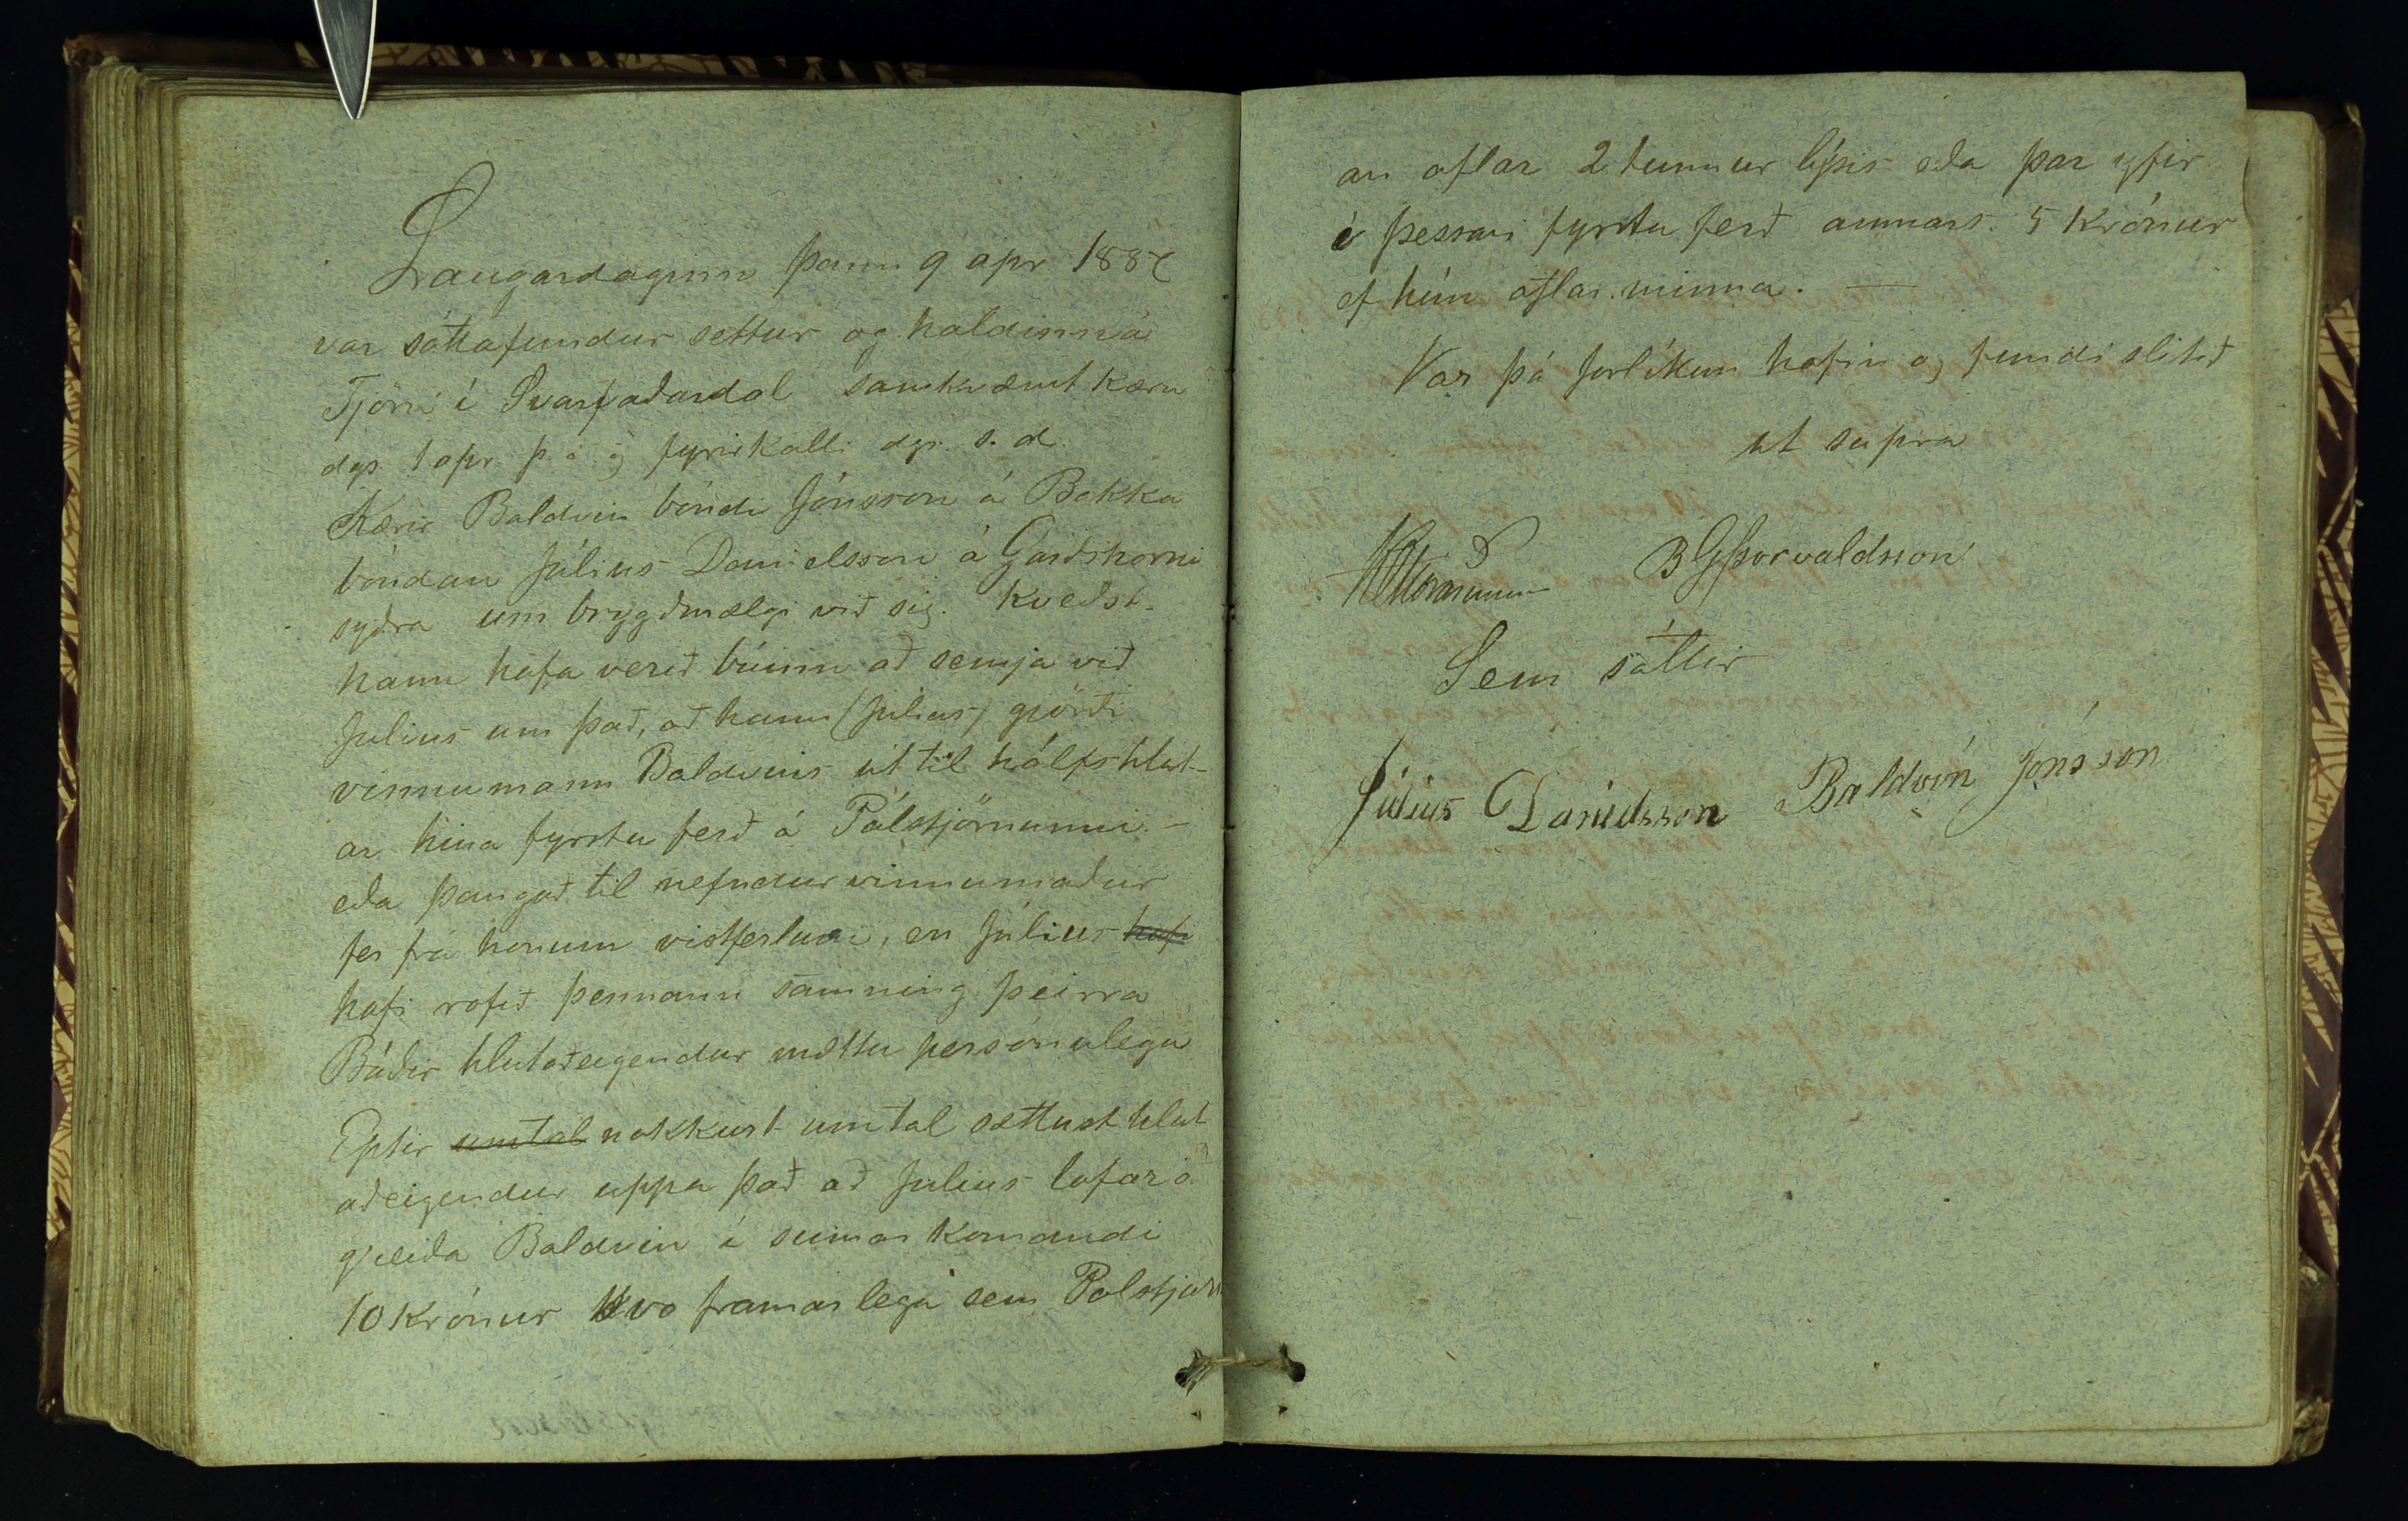 Laugardaginn þann 9 apr 1887
var sáttafundur settur og haldinn á
Tjörn í Svarfaðardal samkvæmt kæru
dgs. 1 apr. þ. á. og fyrirkalli dgs. s. d.
Kærir Baldvin bóndi Jónsson á Bakka
bóndan Július Danielsson á Garðshorni
syðra um brygðmælgi við sig. Kveðst
hann hafa verið búinn að semja við
Julius um það, að hann (Julius) gjörði
vinnumann Baldvins út til hálfs hlut-
ar hina fyrstu ferð á Pólstjörnunni -
eða þangað til nefndur vinnumaður
fer frá honum vistferlum, en Július hafi
hafi rofið þennann samning þeirra
Báðir hlutaðeigendur mættu persónulega
Eptir umtal nokkurt umtal sættust hlut
aðeigendur uppa það að Julius lofar að
greiða Baldvin í sumar komandi
10 krónur svo framarlega sem Polstjarn
an aflar 2 tunnur lýsis eða þar yfir
í þessari fyrstu ferð annars. 5 Krónur
ef hún aflar minna. —
Var þá forlíkun hafin og fundi slitið
ut supra
B G Þorvaldsson
Sem sáttir
Július Daníelsson Baldvin Jónsson